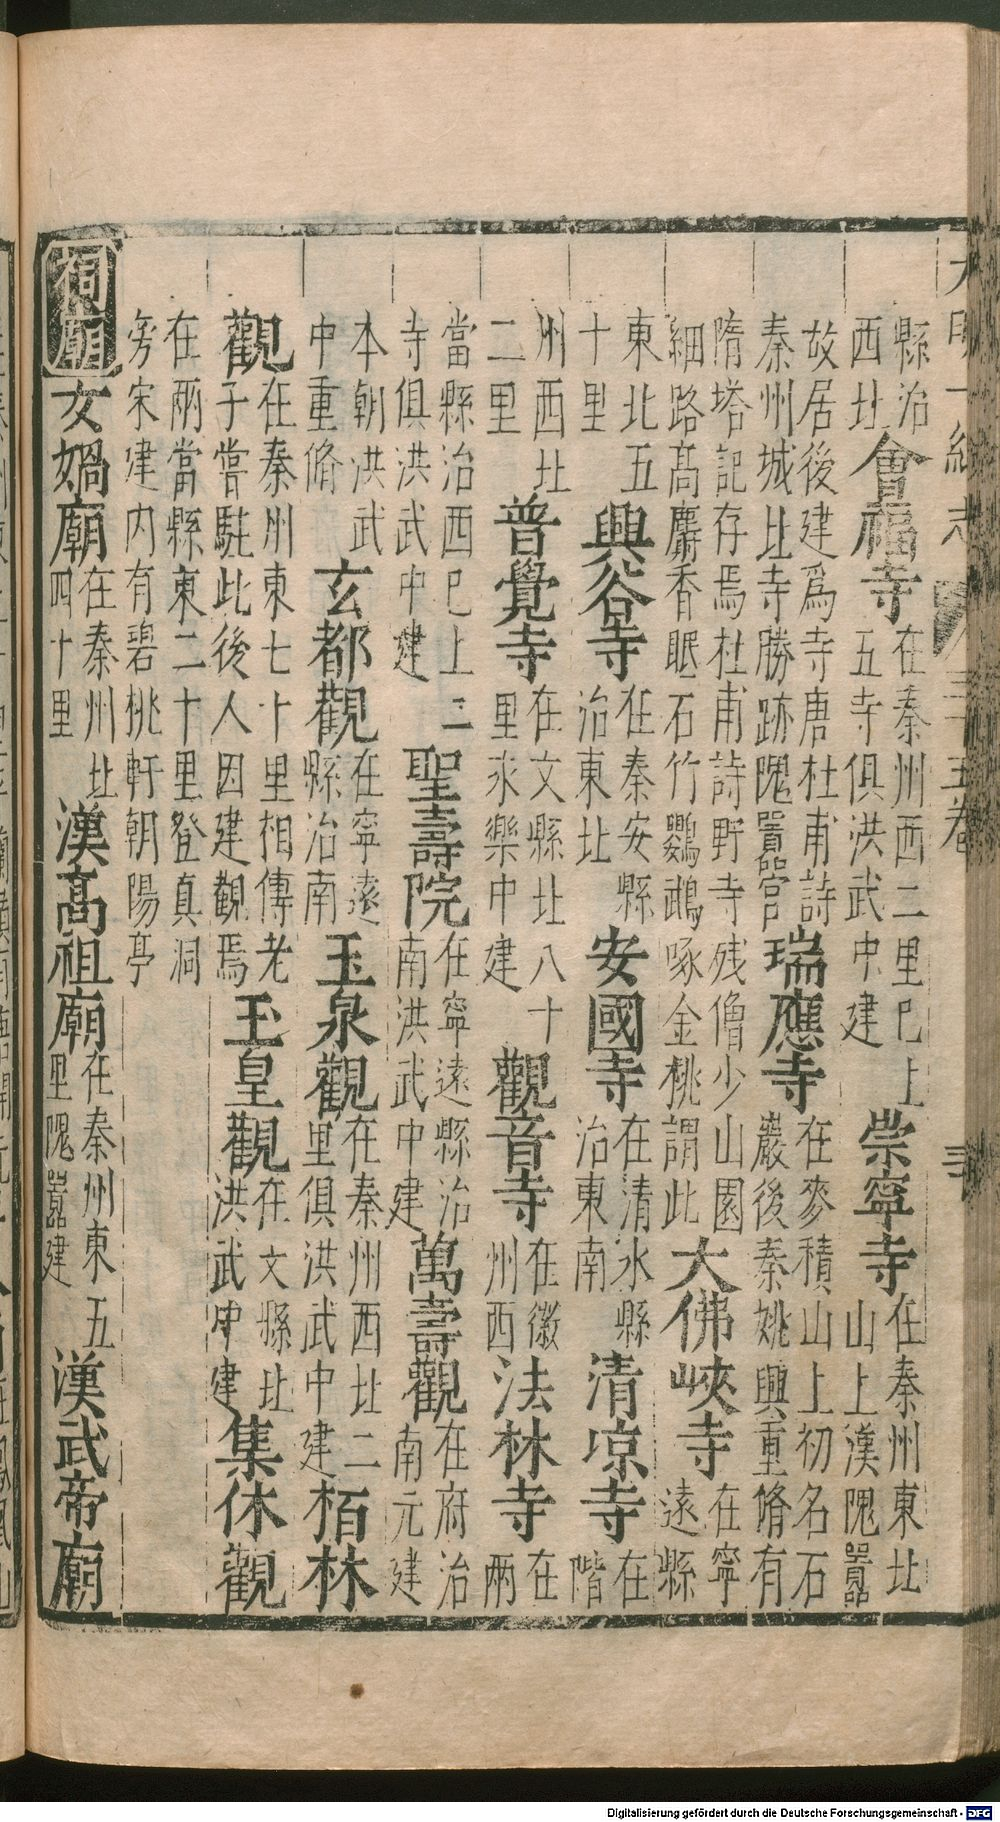 大明一統志 三十五卷
縣治西北會福寺在秦州西二里巳上五寺俱洪武中建崇寧寺在秦州東北山上漢隗囂
故居後建爲寺唐杜甫詩秦州城北寺勝跡隗囂宮瑞應寺在麥積山上初名石巖後秦姚興重脩有
隋塔記存焉杜甫詩野寺残僧少山園細路高麝香眠石竹鸚鵡啄金桃謂此大佛峽寺在寧遠縣
東北五十里興谷寺在秦安縣治東北安國寺在清水縣治東南清凉寺在階
州西北二里普覺寺在文縣北八十里永樂中建觀音寺在徽州西法林寺在兩
當縣治西巳上三寺俱洪武中建聖壽院在寧遠縣治南洪武中建萬壽觀在府治南元建
本朝洪武中重脩玄都觀在寧遠縣治南玉泉觀在秦州西北二里俱洪武中建栢林
觀在秦州東七十里相傳老子嘗駐此後人因建觀焉玉皇觀在文縣北洪武中建集休觀
在兩當縣東二十里登真洞旁宋建内有碧桃軒朝陽亭
祠廟女媧廟在秦州北四十里漢高祖廟在秦州東五里隗囂建漢武帝廟
Digitalisierung gefördert durch die Deutsche Forschungsgemeinschaft - DFG